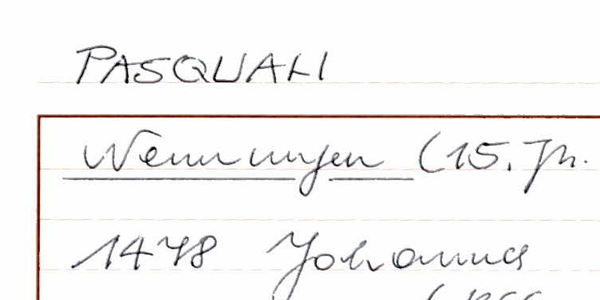 PASQUALI
Wenningen (15. Jh.
1478 Johannes